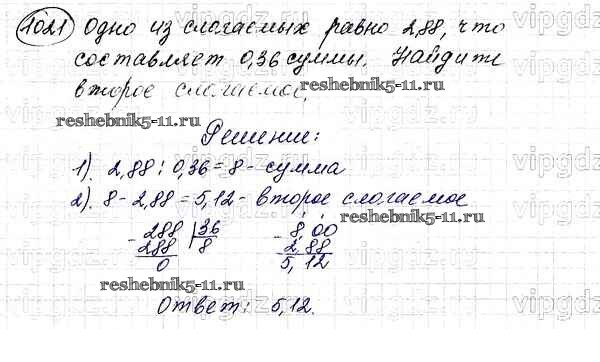 1021 Одно из слогаемых равно 2,88, что
составляет 0,36 суммы. Найдите
второе слогаемое.
reshebnik5-11.ru
reshebnik5-11.ru
Решение:
1). 2,88 : 0,36 = 8 - сумма
2). 8 - 2,88 = 5,12 - второе слогаемое
reshebnik5-11.ru
- 288 | 36 - 8,00
288 8 2,88
0 5,12
reshebnik5-11.ru
Ответ: 5,12.
vipgdz.ru
vipgdz.ru
vipgdz.ru
vipgdz.ru